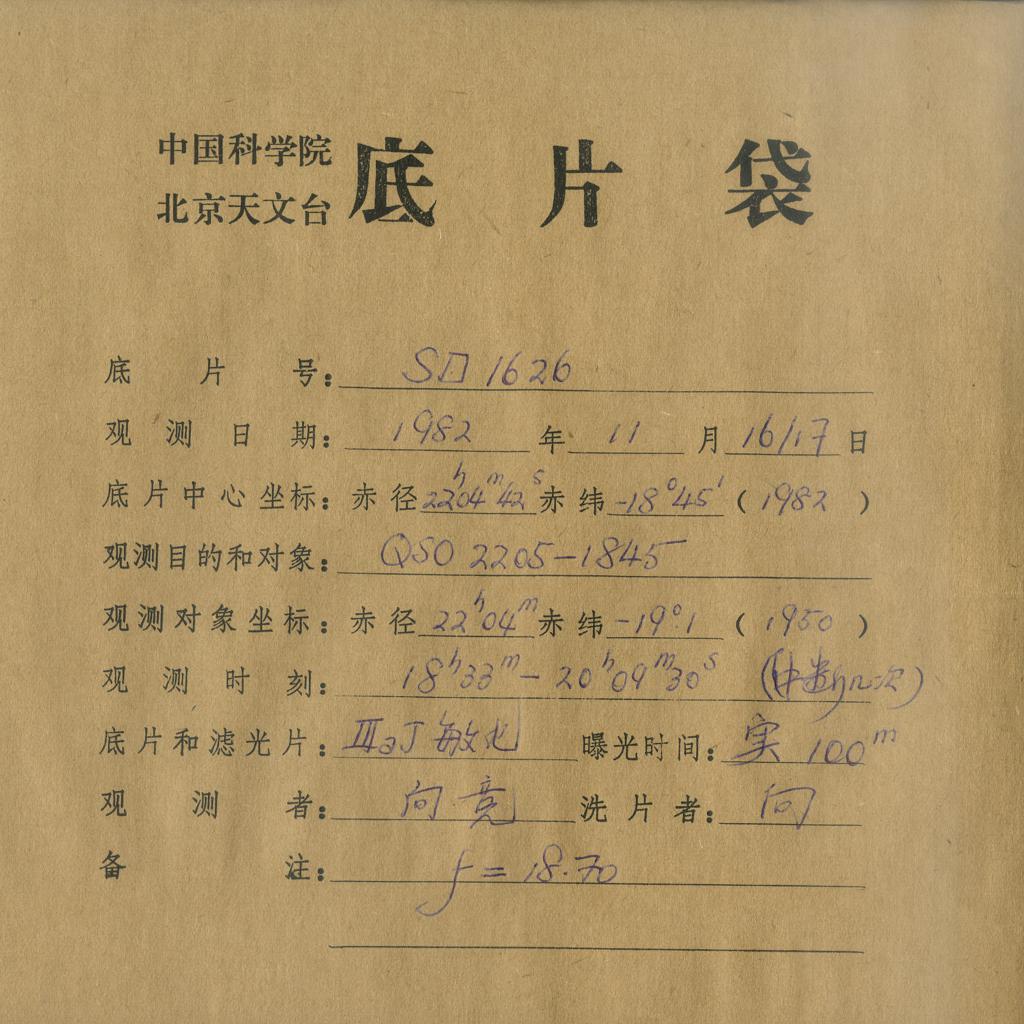 中国科学院
北京天文台
底片袋
底片号: SD 1626
观测日期: 1982 年 11 月 16/17 日
底片中心坐标: 赤径 22h04m42s 赤纬 -18°45′ (1982)
观测目的和对象: QSO 2205-1845
观测对象坐标: 赤径 22h04m 赤纬 -19°.1 (1950)
观测时刻: 18h33m - 20h09m30s (中断几次)
底片和滤光片: ⅢaJ 敏化 曝光时间: 实 100m
观测者: 向. 竞 洗片者: 向
备注: f = 18.70